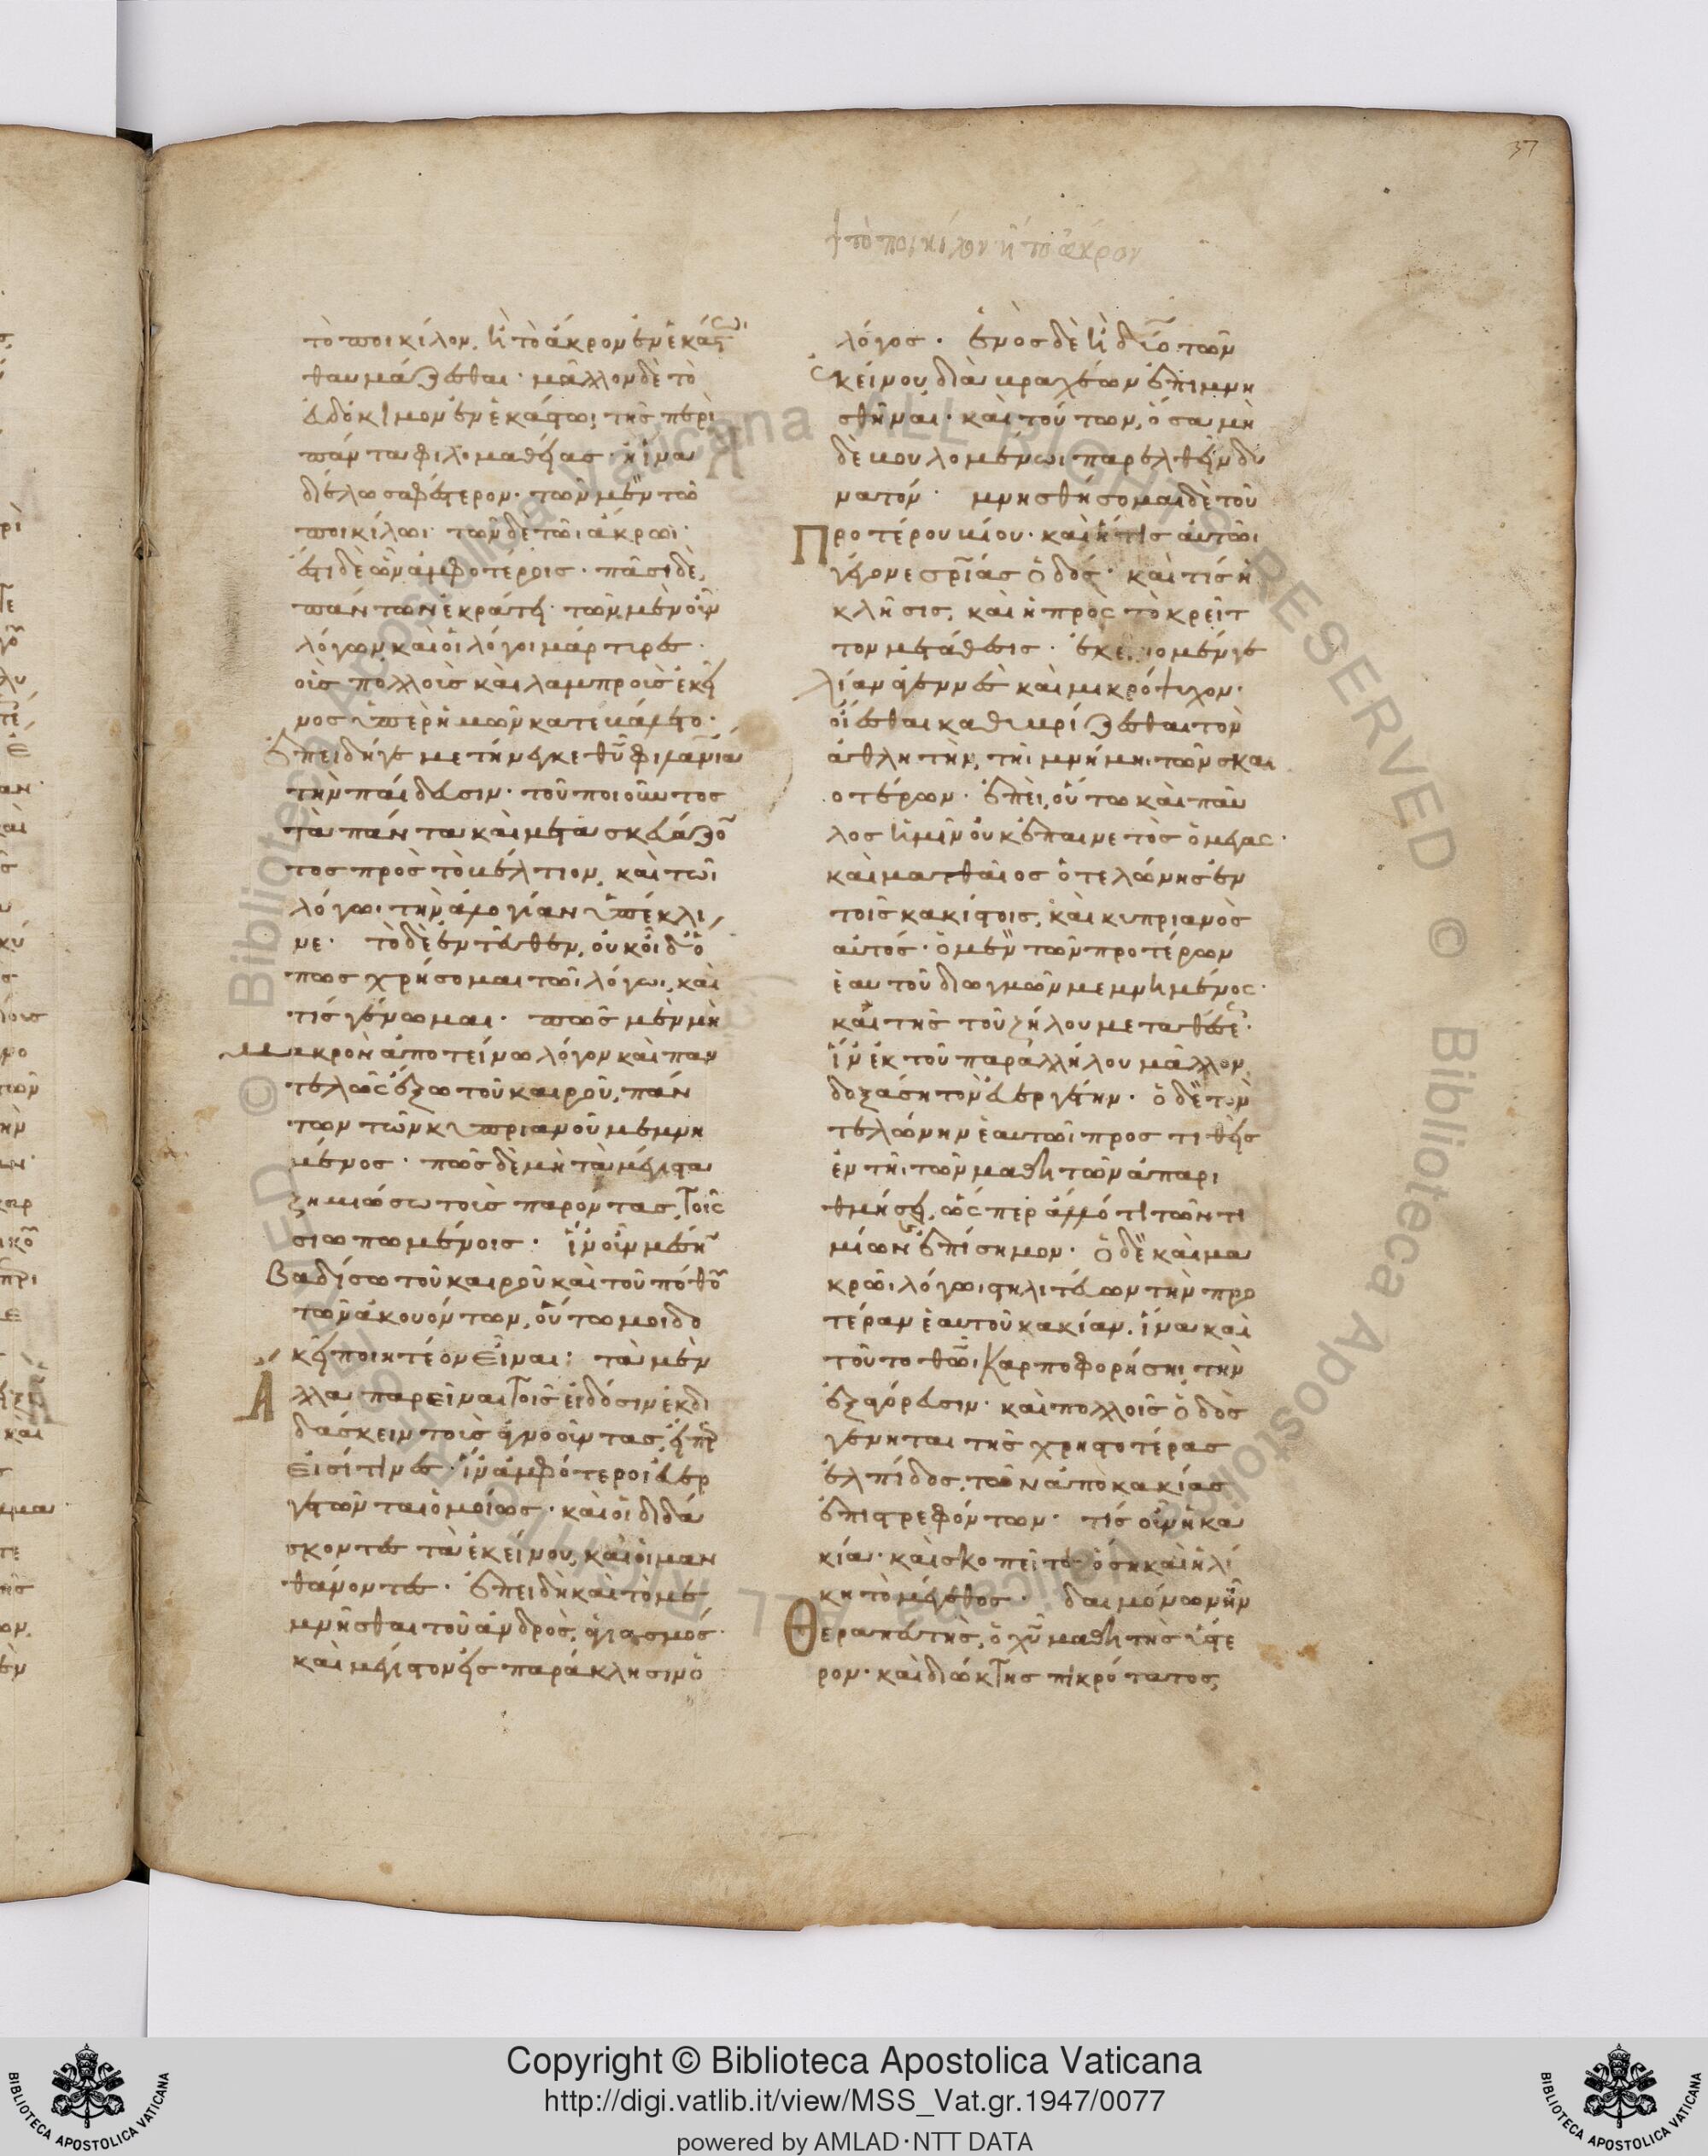 37
τὸ ποικίλον, ἢ τὸ ἄκρον ἐν ἑκάστωι
θαυμάζεσθαι· μᾶλλον δὲ τὸ
εὐδόκιμον ἐν ἑκάστωι τῆς περὶ
πάντα φιλομαθείας· ἢ ἵνα
διέλω σαφέστερον· τῶν μὲν τῶ
ποικίλωι· τῶν δὲ τῶι ἄκρωι·
ἔστι δὲ ὧν ἀμφοτέροις· πᾶσι δὲ,
πάντων ἐκράτει· τῶν μὲν οὖν
λόγων καὶ οἱ λόγοι μάρτυρες·
οἷς πολλοῖς καὶ λαμπροῖς ἐκεῖ
νος ὑπὲρ ἡμῶν κατεβάλετο·
ἐπειδή γε μετήνεγκε θυ φιλανία
τὴν παίδευσιν· τοῦ ποιοῦντος
τὰ πάντα καὶ μετασκευάζο
τος πρὸς τὸ βέλτιον, καὶ τῶι
λόγωι τὴν ἀλογίαν ὑπέκλι
νε· τὸ δὲ ἐντεῦθεν, οὐκ οἶδ' ὅ
πως χρήσομαι τῶι λόγωι, καὶ
τίς γένωμαι· πῶς μὲν μὴ
μακρὸν ἀποτείνω λόγον καὶ παν
τελῶς ἔξω τοῦ καιροῦ, πάν
των τῶν κυπριανοῦ μεμνη
μένος· πῶς δὲ μὴ τὰ μέγιστα
ζημιώσω τοὺς παρόντας, τοῖς
σιωπωμένοις· ἵν' οὖν μέση
βαδίσω τοῦ καιροῦ καὶ τοῦ πόθου
τῶν ἀκουόντων, οὕτω μοι δο
κεῖ ποιητέον εἶναι· τὰ μὲν
ἄλλα παρεῖναι τοῖς εἰδόσιν ἐκδι
δάσκειν τοὺς ἀγνοοῦντας, εἴπερ
εἰσί τινες· ἵν' ἀμφότεροι εὐερ
γετῶνται ὁμοίως· καὶ οἱ διδά
σκοντες τὰ ἐκείνου, καὶ οἱ μαν
θάνοντες· ἐπειδὴ καὶ τὸ με
μνῆσθαι τοῦ ἀνδρὸς, ἁγιασμός·
καὶ μέγιστον εἰς παράκλησιν ὁ
λόγος· ἑνὸς δὲ ἢ δύο τῶν
ἐκείνου διὰ βραχέων ἐπιμνη
σθῆναι· καὶ τούτων, ὅσα μη
δὲ βουλομένωι παρελθεῖν δυ
νατόν· μνησθήσομαι δὲ τοῦ
προτέρου βίου· καὶ ἥτις αὐτῶι
γέγονε σρίας ὁδός· καὶ τίς ἡ
κλῆσις, καὶ ἡ πρὸς τὸ κρεῖτ
τον μετάθεσις·
λίαν ἀγεννὲς καὶ μικρόψυχον·
οἴεσθαι καθυβρίζεσθαι τὸν
ἀθλητὴν, τῆι μνήμηι τῶν σκαι
οτέρων· ἐπεὶ, οὕτω καὶ παῦ
λος ἡμῖν οὐκ ἐπαινετὸς ὁ μέγας·
καὶ ματθαῖος ὁ τελώνης ἐν
τοῖς κακίστοις, καὶ κυπριανὸς
αὐτός· ὁ μὲν τῶν προτέρων
ἑαυτοῦ διωγμῶν μεμνημένος·
καὶ τῆς τοῦ ζήλου μεταθέσεως·
ἵν' ἐκ τοῦ παραλλήλου μᾶλλον
δοξάση τὸν εὐεργέτην· ὁ δὲ τὸν
τελώνην ἑαυτῶι προστιθεὶς
ἐν τῆι τῶν μαθητῶν ἀπαρι
θμήσει, ὥσπερ ἄλλό τι τῶν τι
μίων ἐπίσημον· ὁ δὲ καὶ μα
κρῶι λόγωι στηλιτεύων τὴν προ
τέραν ἑαυτοῦ κακίαν, ἵνα καὶ
τοῦτο θῶι καρποφορήσηι τὴν
ἐξαγόρευσιν· καὶ πολλοῖς ὁδὸς
γένηται τῆς χρηστοτέρας
ἐλπίδος, τῶν ἀπὸ κακίας
ἐπιστρεφόντων· τίς οὖν ἡ κα
κία· καὶ σκοπεῖτε ὅση καὶ ἡλί
κη τὸ μέγεθος· δαιμόνων ἦν
θεραπευτὴς, ὁ χυ μαθητὴς ὕστε
ρον· καὶ διώκτης πικρότατος,
Copyright © Biblioteca Apostolica Vaticana
http://digi.vatlib.it/view/MSS_Vat.gr.1947/0077
powered by AMLAD·NTT DATA
BIBLIOTECA APOSTOLICA VATICANA
BIBLIOTECA APOSTOLICA VATICANA